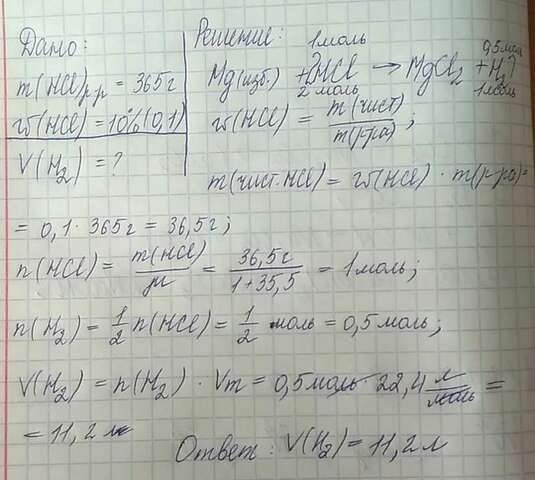 Дано:
m(HCl)р-р = 365г
w(HCl) = 10% (0,1)
V(H₂) = ?
Решение:
1моль 0,5моль
Mg(изб.) + 2HCl → MgCl₂ + H₂↑
2 моль 1моль
w(HCl) = m(чист) / m(р-ра) ;
m(чист. HCl) = w(HCl) · m(р-ра) =
= 0,1 · 365г = 36,5г;
n(HCl) = m(HCl) / μ = 36,5г / 1+35,5 = 1моль;
n(H₂) = 1/2 n(HCl) = 1/2 моль = 0,5моль;
V(H₂) = n(H₂) · Vm = 0,5моль · 22,4 л/моль =
= 11,2 л
Ответ: V(H₂) = 11,2 л